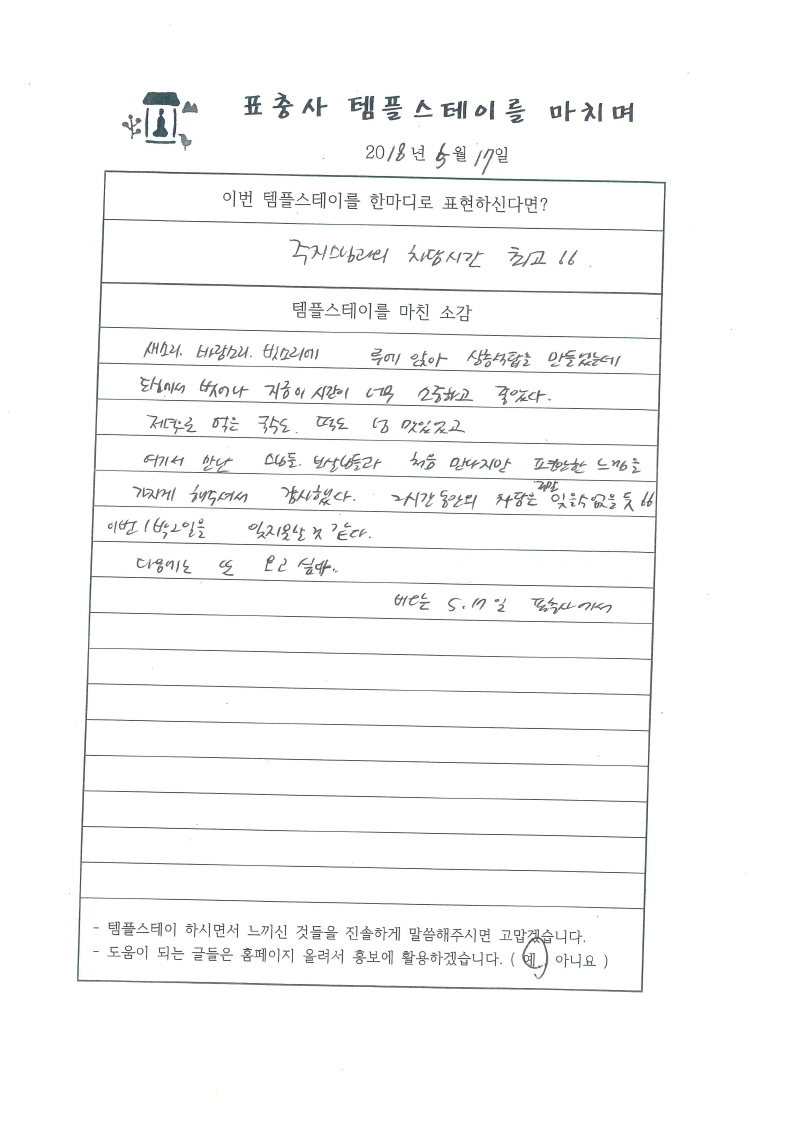 표충사 템플스테이를 마치며
2018년 5월 17일
이번 템플스테이를 한마디로 표현하신다면?
주지스님과의 차담시간 최고 bb.
템플스테이를 마친 소감
새소리. 바람소리. 빗소리에 루에 앉아 삼층석탑을 만들었는데
도심에서 벗어나 지금 이 시간이 너무 소중하고 좋았다.
저녁으로 먹은 국수도. 떡도 넘 맛있었고
여기서 만난 스님들. 보살님들과 처음 만나지만 편안한 느낌을
가지게 해주셔서 감사했다. 2시간 동안의 차담은 정말 잊을수 없을 듯 bb
이번 1박2일을 잊지못할 것 같다.
다음에는 또 오고 싶다..
비오는 5.17일 표충사에서
- 템플스테이 하시면서 느끼신 것들을 진솔하게 말씀해주시면 고맙겠습니다.
- 도움이 되는 글들은 홈페이지 올려서 홍보에 활용하겠습니다. ( 예. 아니요 )